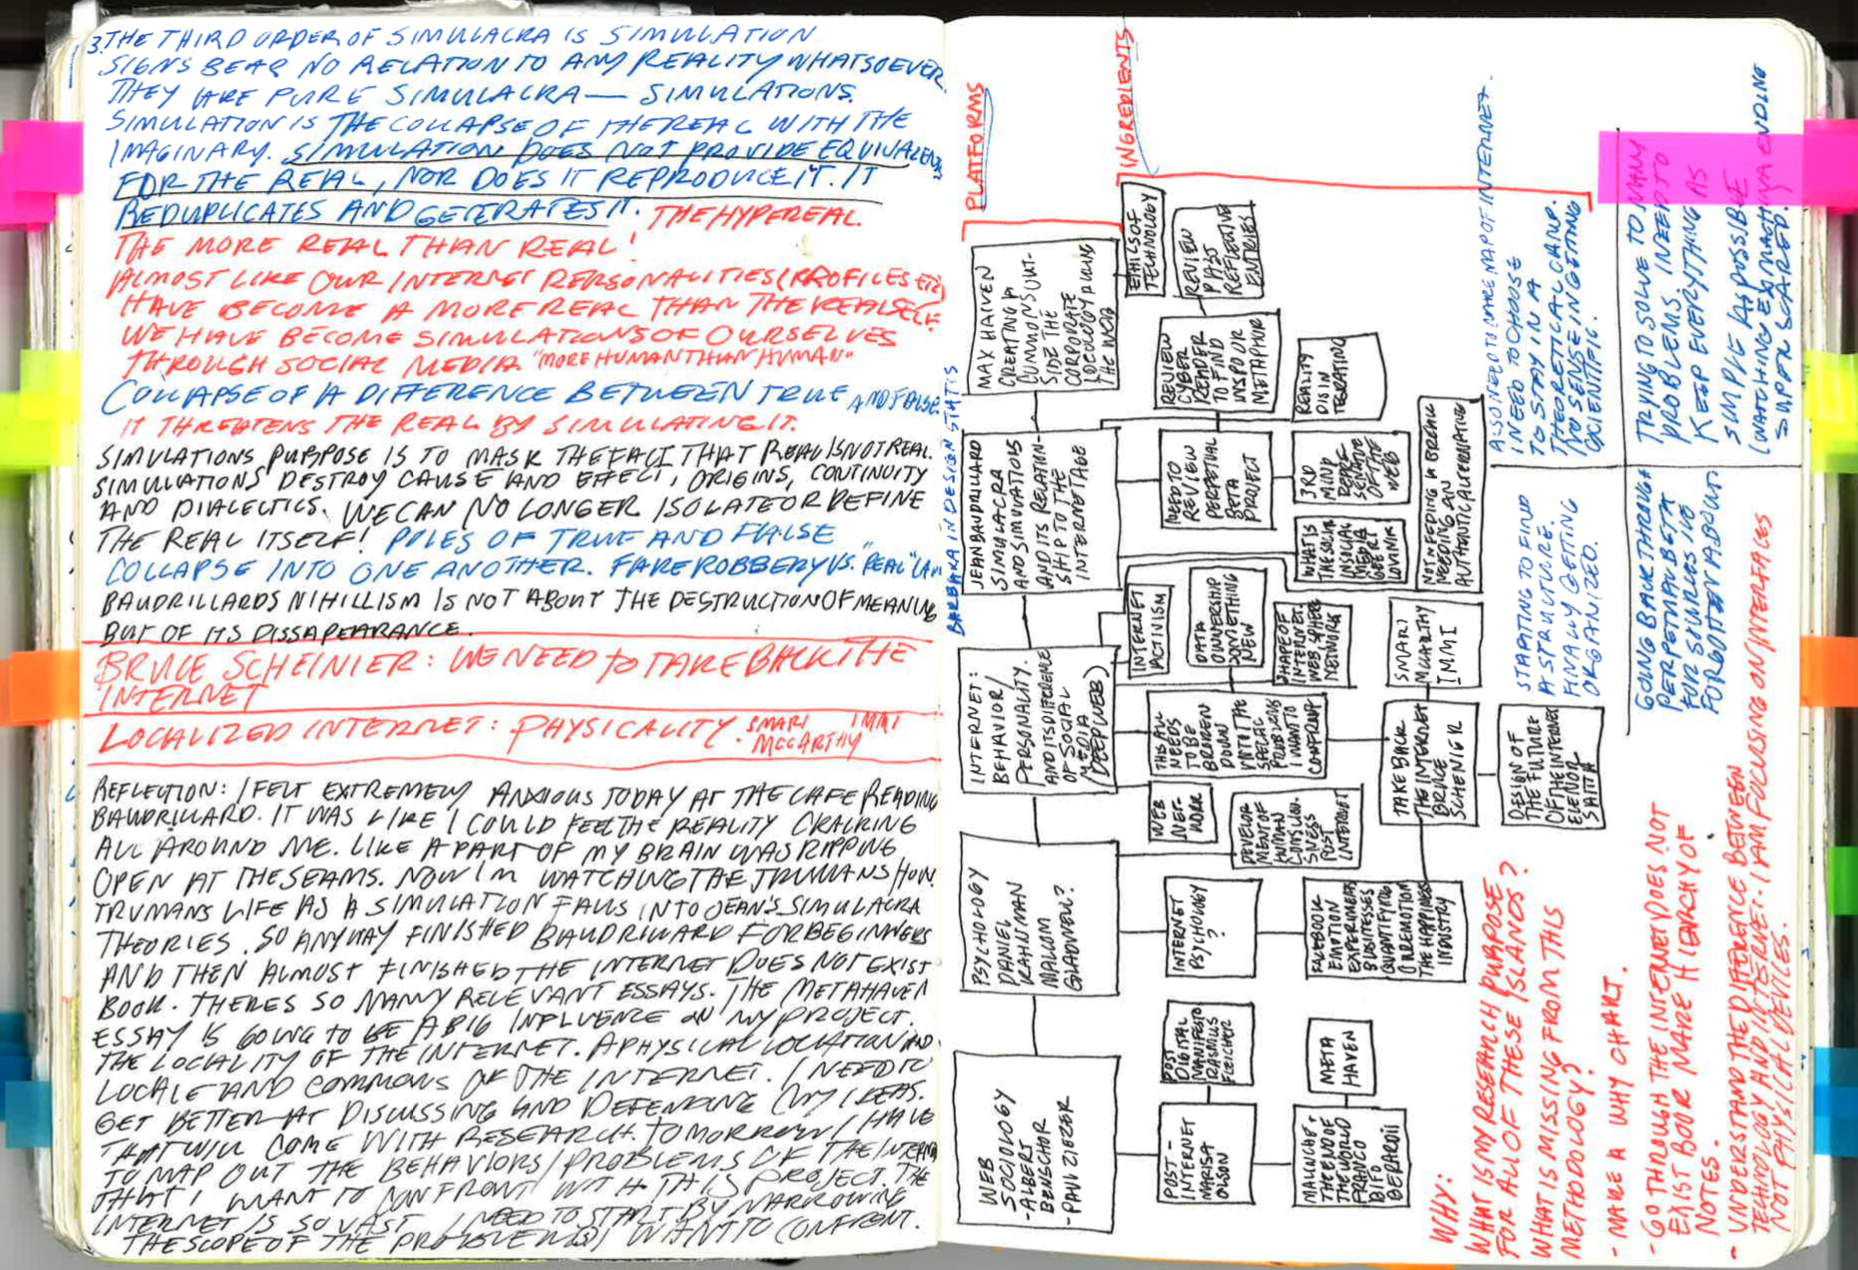 3. THE THIRD ORDER OF SIMULACRA IS SIMULATION
SIGNS BEAR NO RELATION TO ANY REALITY WHATSOEVER
THEY ARE PURE SIMULACRA — SIMULATIONS.
SIMULATION IS THE COLLAPSE OF THE REAL WITH THE
IMAGINARY. SIMULATION DOES NOT PROVIDE EQUIVALENTS
FOR THE REAL, NOR DOES IT REPRODUCE IT. IT
REDUPLICATES AND GENERATES IT. THE HYPEREAL.
THE MORE REAL THAN REAL!
ALMOST LIKE OUR INTERNET PERSONALITIES (PROFILES ETC)
HAVE BECOME A MORE REAL THAN THE REAL SELF.
WE HAVE BECOME SIMULATIONS OF OURSELVES
THROUGH SOCIAL MEDIA. "MORE HUMAN THAN HUMAN"
COLLAPSE OF A DIFFERENCE BETWEEN TRUE AND FALSE.
IT THREATENS THE REAL BY SIMULATING IT.
SIMULATIONS PURPOSE IS TO MASK THE FACT THAT REAL IS NOT REAL.
SIMULATIONS DESTROY CAUSE AND EFFECT, ORIGINS, CONTINUITY
AND DIALECTICS. WE CAN NO LONGER ISOLATE OR DEFINE
THE REAL ITSELF! POLES OF TRUE AND FALSE
COLLAPSE INTO ONE ANOTHER. FAKE ROBBERY VS. "REAL"
BAUDRILLARDS NIHILLISM IS NOT ABOUT THE DESTRUCTION OF MEANING
BUT OF ITS DISSAPEARANCE.
BRUCE SCHEINIER: WE NEED TO TAKE BACK THE
INTERNET
LOCALIZED INTERNET: PHYSICALITY. SMARI MCCARTHY IMMI
REFLECTION: I FELT EXTREMELY ANXIOUS TODAY AT THE CAFE READING
BAUDRILLARD. IT WAS LIKE I COULD FEEL THE REALITY CRACKING
ALL AROUND ME. LIKE A PART OF MY BRAIN WAS RIPPING
OPEN AT THE SEAMS. NOW IM WATCHING THE TRUMANS HOW.
TRUMANS LIFE AS A SIMULATION FALLS INTO JEAN'S SIMULACRA
THEORIES. SO ANYWAY FINISHED BAUDRILLARD FOR BEGINNERS
AND THEN ALMOST FINISHED THE INTERNET DOES NOT EXIST
BOOK. THERES SO MANY RELEVANT ESSAYS. THE METAHAVEN
ESSAY IS GOING TO BE A BIG INFLUENCE ON MY PROJECT.
THE LOCALITY OF THE INTERNET. A PHYSICAL LOCATION AND
LOCALE AND COMMONS OF THE INTERNET. I NEED TO
GET BETTER AT DISCUSSING AND DEFENDING MY IDEAS.
THAT WILL COME WITH RESEARCH. TOMORROW I HAVE
TO MAP OUT THE BEHAVIORS/PROBLEMS OF THE INTERNET
THAT I WANT TO CONFRONT WITH THIS PROJECT. THE
INTERNET IS SO VAST I NEED TO START BY NARROWING
THE SCOPE OF THE PROBLEM(S) I WANT TO CONFRONT.
PLATFORMS
INGREDIENTS
BARBARA IN DESIGN STATIS
MAX HAIVEN
CREATING A
COMMONS OUT-
SIDE THE
CORPORATE
THE WEB
JEAN BAUDRILLARD
SIMULACRA
AND SIMULATIONS
AND ITS RELATION-
SHIP TO THE
INTERNET AGE
INTERNET:
BEHAVIOR/
PERSONALITY.
AND ITS DIFFERENCE
OF SOCIAL
MEDIA
(DEEP WEB)
PSYCHOLOGY
DANIEL
KAHNMAN
MALCOM
GLADWELL?
WEB
SOCIOLOGY
-ALBERT
BENSCHOP
-PAUL ZIEZER
ETHICS OF
TECHNOLOGY
REVIEW
PAST
REFLECTIVE
ENTRIES
REVIEW
CYBER
READER
TO FIND
INSPO OR
METAPHOR
REALITY
DISIN
TEGRATING
NEED TO
REVIEW
PERPETUAL
BETA
PROJECT
3RD
MIND
REPRE-
SENTATIVE
OF THE
WEB
WHAT IS
THE SOCIAL
IN SOCIAL
MEDIA
GEERT
LOVINK
NOT NEEDING A BREAK
NEEDING AN
AUTHENTIC ALTERNATIVE
INTERNET
ACTIVISM
DATA
OWNERSHIP
SOMETHING
NEW
SHAPE OF
INTERNET.
WEB. SPHERE
NETWORK
SMARI
MCCARTHY
IMMI
THIS ALL
NEEDS
TO BE
BROKEN
DOWN
INTO THE
SPECIFIC
PROBLEMS
I WANT TO
CONFRONT
TAKE BACK
THE INTERNET
BRUCE
SCHENIER
DESIGN OF
THE FUTURE
OF THE INTERNET
ELENOR
SAITTA
WEB
NET-
WORK
DEVELOP
MENT OF
HUMAN
CONSCIOU-
SNESS
POST
INTERNET
INTERNET
PSYCHOLOGY
?
FACEBOOK
EMOTION
EXPERIMENTS
BUSINESSES
QUANTIFYING
OUR EMOTION
THE HAPPINESS
INDUSTRY
POST
DIGITAL
MANIFESTO
RASMUS
FLEICHER
META
HAVEN
POST-
INTERNET
MARISA
OLSON
MALLUCHE.
THE END OF
THE WORLD
FRANCO
BIFO
BERARDI
ALSO NEED TO MAKE MAP OF INTERNET.
I NEED TO CHOOSE
TO STAY IN A
THEORETICAL CAMP.
NO SENSE IN GETTING
SCIENTIFIC.
TRYING TO SOLVE TO MANY
PROBLEMS. I NEED TO
KEEP EVERYTHING AS
SIMPLE AS POSSIBLE
(WATCHING EX MACHINA ENDING
SUPER SCARED.
STARTING TO FIND
A STRUCTURE.
FINALLY GETTING
ORGANIZED.
GOING BACK THROUGH
PERPETUAL BETA
FOR SOURCES IVE
FORGOTTEN ABOUT.
WHY:
WHAT IS MY RESEARCH PURPOSE
FOR ALL OF THESE ISLANDS?
WHAT IS MISSING FROM THIS
METHODOLOGY?
- MAKE A WHY CHART.
- GO THROUGH THE INTERNET DOES NOT
EXIST BOOK MAKE HIEARCHY OF
NOTES.
- UNDERSTAND THE DIFFERENCE BETWEEN
TECHNOLOGY AND INTERNET. I AM FOCUSING ON INTERFACES
NOT PHYSICAL DEVICES.